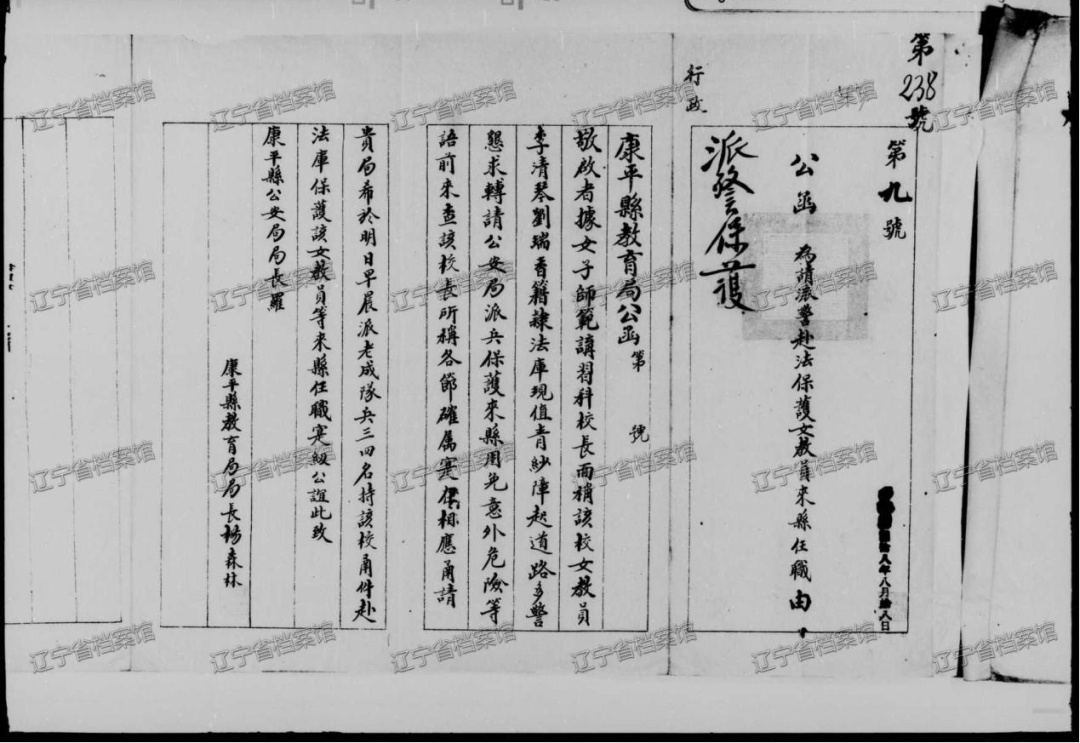 第238號
第九號
公函 為請派警赴法保護女教員來縣任職由
八年八月拾八日
行政
派警保護
康平縣教育局公函第 號
敬啟者據女子師範講習科校長面稱該校女教員
李清琴劉瑞香籍隸法庫現值青紗障起道路多警
懇求轉請公安局派兵保護來縣用免意外危險等
語前來查該校長所稱各節確屬寔在相應函請
貴局希於明日早晨派老成隊兵三四名持該校函件赴
法庫保護該女教員等來縣任職寔紉公誼此致
康平縣公安局局長羅
康平縣教育局局長楊森林
辽宁省档案馆